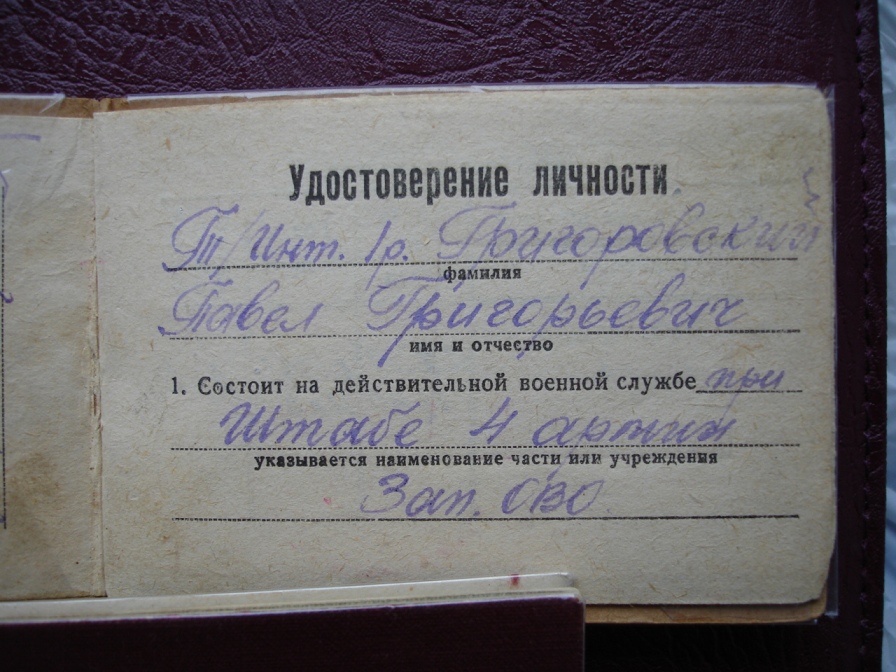 Удостоверение личности
Т/Инт. 1р. Григоровский
фамилия
Павел Григорьевич
имя и отчество
1. Состоит на действительной военной службе при
Штабе 4 армии
указывается наименование части или учреждения
Зап. ОВО